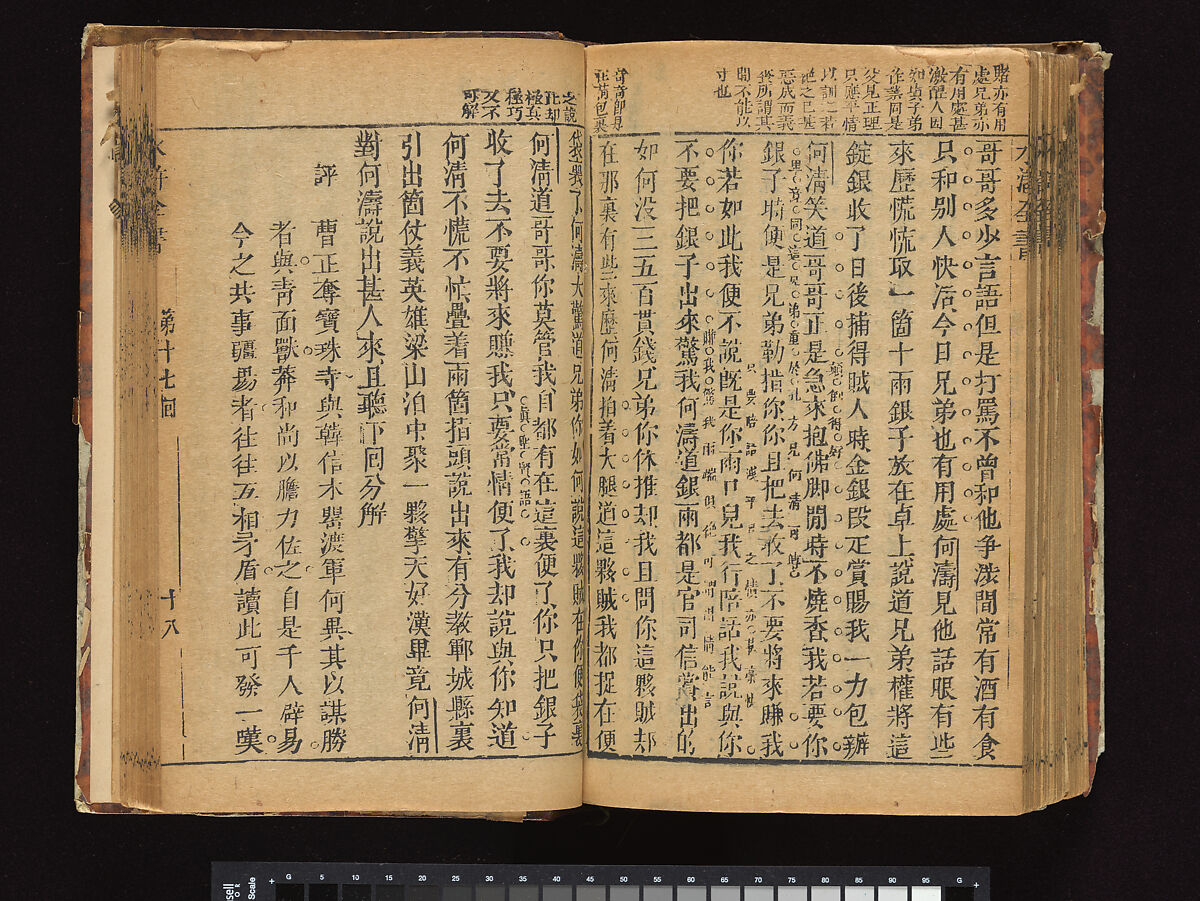 賭亦有用
處兄弟亦
有用處甚
激醒人因
作業同是
父兄正理
只應平情
以訓之若
絕之已甚
惡成而義
所謂其
間不能以
寸也
水滸全書
哥哥多少言語但是打罵不曾和他爭涉閒常有酒有食
只和別人快活今日兄弟也有用處何濤見他話眼有些
來歷慌忙取一箇十兩銀子放在卓上說道兄弟權將這
錠銀收了日後捕得賊人時金銀段疋賞賜我一力包辦
何清笑道哥哥正是急來抱佛脚閒時不燒香我若要你
銀子時便是兄弟勒掯你你且把去收了不要將來賺我
你若如此我便不說既是你兩口兒我行陪話我說與你
不要把銀子出來驚我何濤道銀兩都是官司信賞出的
如何沒三五百貫錢兄弟你休推却我且問你這夥賊却
在那裏有些來歷何清拍着大腿道這夥賊我都捉在便
正荷包裏
之說
極巧
又不
可解
袋裏了何濤大驚道兄弟你如何說這夥賊在你便袋裏
何清道哥哥你莫管我自都有在這裏便了你只把銀子
收了去不要將來賺我只要常情便了我却說與你知道
何清不慌不忙疊着兩箇指頭說出來有分教鄆城縣裏
引出箇仗義英雄梁山泊中聚一夥擎天好漢畢竟何清
對何濤說出甚人來且聽下回分解
評
曹正奪寶珠寺與韓信木罌渡軍何異其以謀勝
者與靑面獸莽和尚以膽力佐之自是千人辟易
今之共事疆場者往往互相矛盾讀此可發一嘆
水滸全書
第十七回
十八